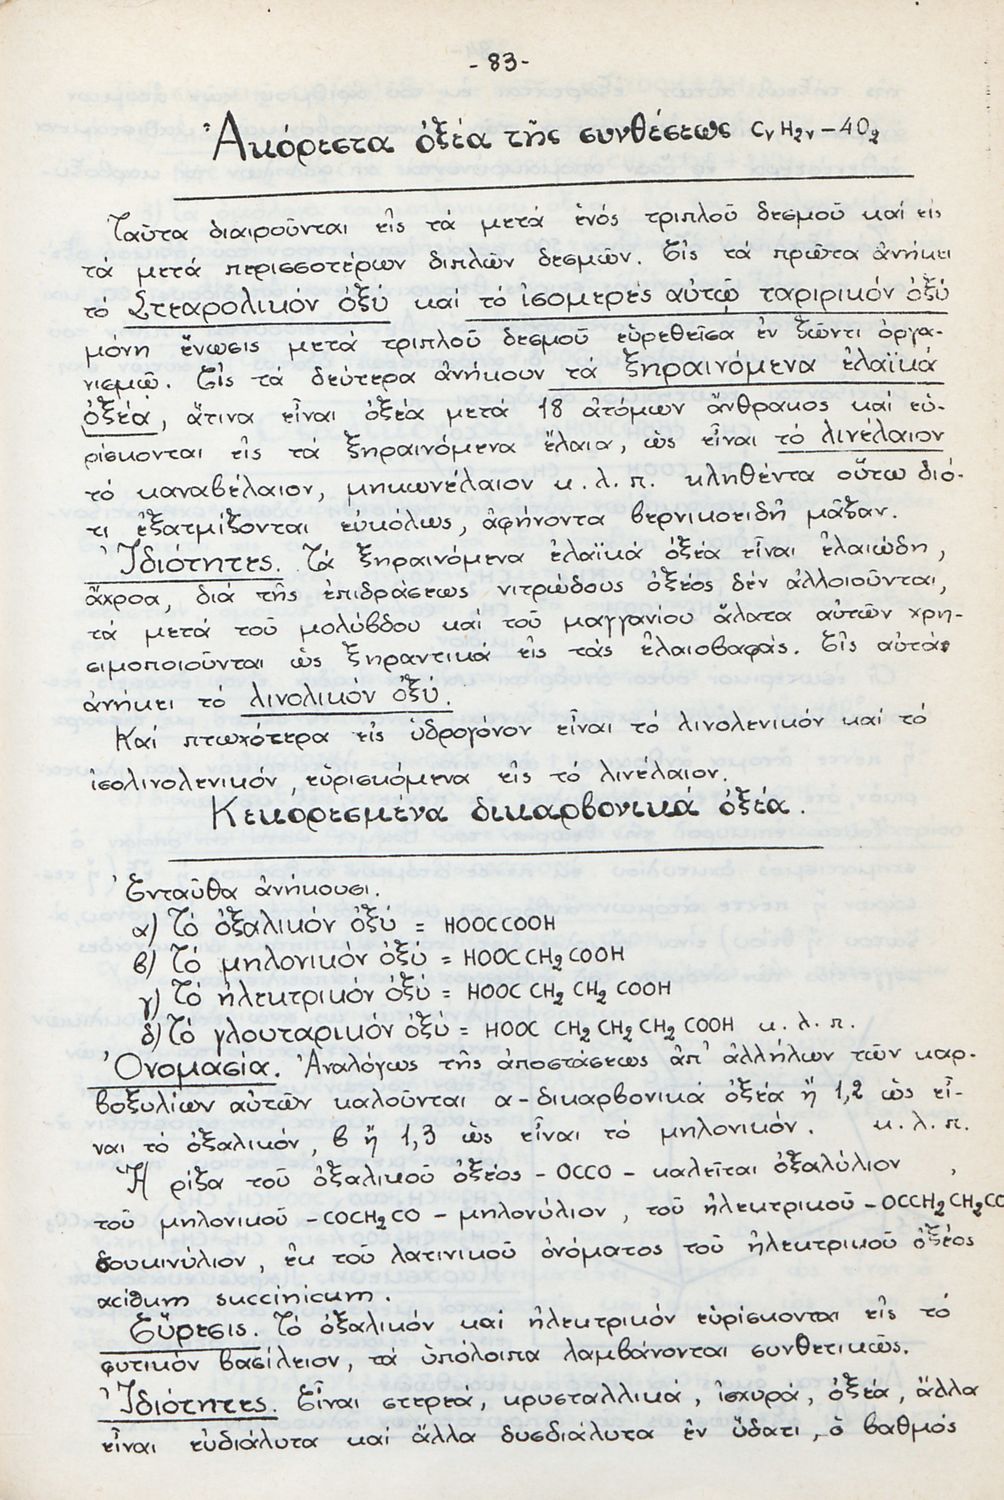 -83-
Ἀκόρεστα ὀξέα τῆς συνθέσεως CνH2ν-4O2
Ταῦτα διαιροῦνται εἰς τά μετά ἑνός τριπλοῦ δεσμοῦ καί εἰς
τά μετά περισσοτέρων διπλῶν δεσμῶν. Εἰς τά πρῶτα ἀνήκει
τό Στεαρολικόν ὀξύ καί τό ἰσομερές αὐτῷ ταριρικόν ὀξύ
μόνη ἕνωσις μετά τριπλοῦ δεσμοῦ εὑρεθεῖσα ἐν ζῶντι ὀργα-
νισμῷ. Εἰς τά δεύτερα ἀνήκουν τά ξηραινόμενα ἐλαϊκά
ὀξέα, ἅτινα εἶναι ὀξέα μετά 18 ἀτόμων ἄνθρακος καί εὑ-
ρίσκονται εἰς τά ξηραινόμενα ἔλαια, ὡς εἶναι τό λινέλαιον
τό καναβέλαιον, μηκωνέλαιον κ.λ.π. κληθέντα οὕτω διό-
τι ἐξατμίζονται εὐκόλως, ἀφήνοντα βερνικοειδῆ μᾶζαν.
Ἰδιότητες. Τά ξηραινόμενα ἐλαϊκά ὀξέα εἶναι ἐλαιώδη,
ἄχροα, διά τῆς ἐπιδράσεως νιτρώδους ὀξέος δέν ἀλλοιοῦνται,
τά μετά τοῦ μολύβδου καί τοῦ μαγγανίου ἅλατα αὐτῶν χρη-
σιμοποιοῦνται ὡς ξηραντικά εἰς τάς ἐλαιοβαφάς. Εἰς αὐτά
ἀνήκει τό λινολικόν ὀξύ.
Καί πτωχότερα εἰς ὑδρογόνον εἶναι τό λινολενικόν καί τό
ἰσολινολενικόν, εὑρισκόμενα εἰς τό λινέλαιον.
Κεκορεσμένα δικαρβονικά ὀξέα.
Ἐνταῦθα ἀνήκουσι.
α) Τό ὀξαλικόν ὀξύ = HOOCCOOH
β) Τό μηλονικόν ὀξύ = HOOCCH2COOH
γ) Τό ἠλεκτρικόν ὀξύ = HOOC CH2 CH2 COOH
δ) Τό γλουταρικόν ὀξύ = HOOC CH2CH2CH2 COOH κ.λ.π.
Ὀνομασία. Ἀναλόγως τῆς ἀποστάσεως ἀπ' ἀλλήλων τῶν καρ-
βοξυλίων αὐτῶν καλοῦνται α-δικαρβονικά ὀξέα ἤ 1,2 ὡς εἶ-
ναι τό ὀξαλικόν, β ἤ 1,3 ὡς εἶναι τό μηλονικόν. κ.λ.π.
Ἡ ρίζα τοῦ ὀξαλικοῦ ὀξέος -OCCO- καλεῖται ὀξαλύλιον ,
τοῦ μηλονικοῦ -COCH2CO- μηλονύλιον, τοῦ ἠλεκτρικοῦ -OCCH2CH2CO
σουκινύλιον, ἐκ τοῦ λατινικοῦ ὀνόματος τοῦ ἠλεκτρικοῦ ὀξέος
acidum succinicum.
Εὕρεσις. Τό ὀξαλικόν καί ἠλεκτρικόν εὑρίσκονται εἰς τό
φυτικόν βασίλειον, τά ὑπόλοιπα λαμβάνονται συνθετικῶς.
Ἰδιότητες. Εἶναι στερεά, κρυσταλλικά, ἰσχυρά, ὀξέα, ἄλλα
εἶναι εὐδιάλυτα καί ἄλλα δυσδιάλυτα ἐν ὕδατι, ὁ βαθμός